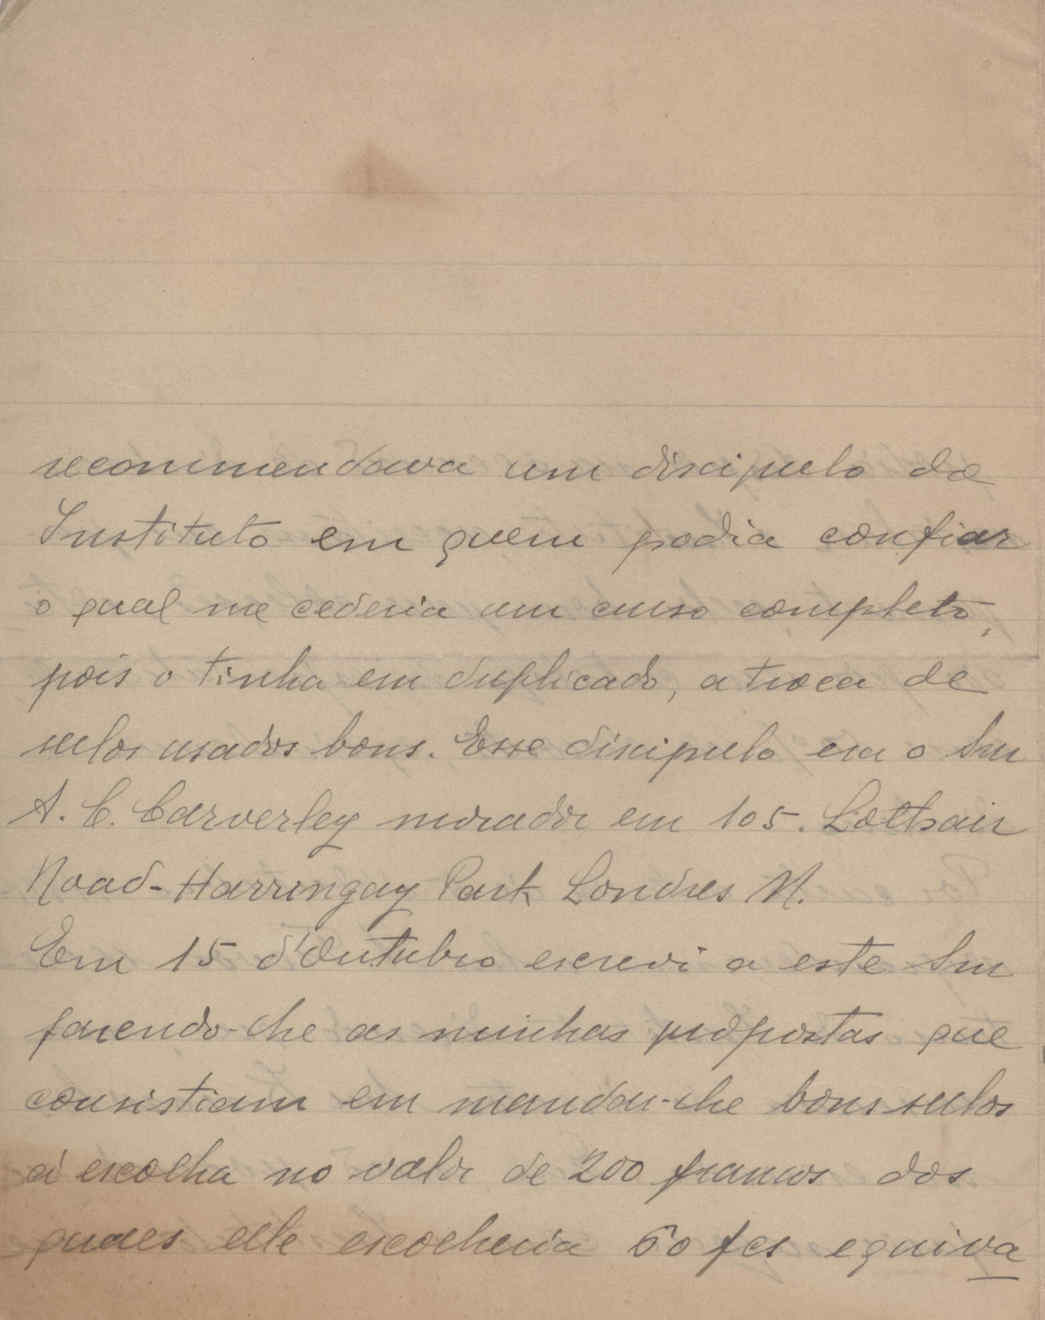 recommendava um discipulo do
Instituto em quem podia confiar
o qual me cederia um curso completo,
pois o tinha em duplicado, a troca de
sellos usados bons. Esse discipulo era o Snr
A. C. Carverley morador em 105. Lothair
Road - Harringay Park Londres N.
Em 15 d'Outubro escrevi a este Snr
fazendo-lhe as minhas propostas que
consistiam em mandar-lhe bons sellos
á escolha no valor de 200 francos dos
quaes elle escolheria 60 fcs equiva